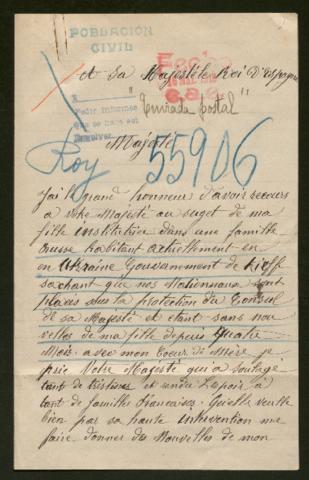 POBLACION
CIVIL
A Sa Majesté le Roi d'Espagne
"Enviada postal"
Pedir informes
Majesté
Roy 55906
J'ai le grand honneur d'avoir recours
à votre Majesté au sujet de ma
fille institutrice dans une famille
russe habitant actuellement en
en Ukraine Gouvernement de Kieff
sachant que nos Nationaux sont
placés sous la protection du Consul
de sa Majesté et étant sans nou
velles de ma fille depuis quatre
Mois. avec mon Coeur de Mère je
prie Votre Majesté qui a soulagé
tant de tristesses et rendu l'espoir à
tant de familles Francaises. Qu'elle veuille
bien par sa haute intervention me
faire donner des Nouvelles de mon